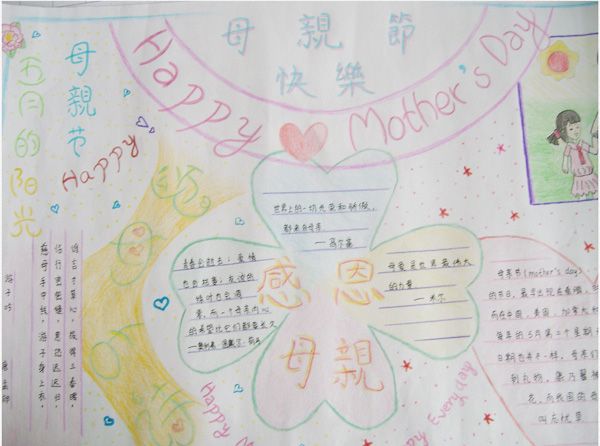 母親節
快樂
Happy Mother's Day
五月的阳光
母親节
Happy
世界上的一切光荣和骄傲，
都来自母亲
—高尔基
青春会逝去；爱情
会枯萎；友谊的
绿叶也会凋
零。而一个母亲内心
的希望比它们都要长久
母爱是世界最伟大
的力量
—米尔
感恩
母親
母亲节(mother's day)
的节日，最早出现在希腊，
而在中国、美国、加拿大和
每年的5月第二个星期
日期也并不一样。母亲们
到礼物，康乃馨被
花，而我国的母
叫忘忧草
游子吟
慈母手中线，游子身上衣。
临行密密缝，意恐迟迟归。
谁言寸草心，报得三春晖。
Happy M
Happy Everyday